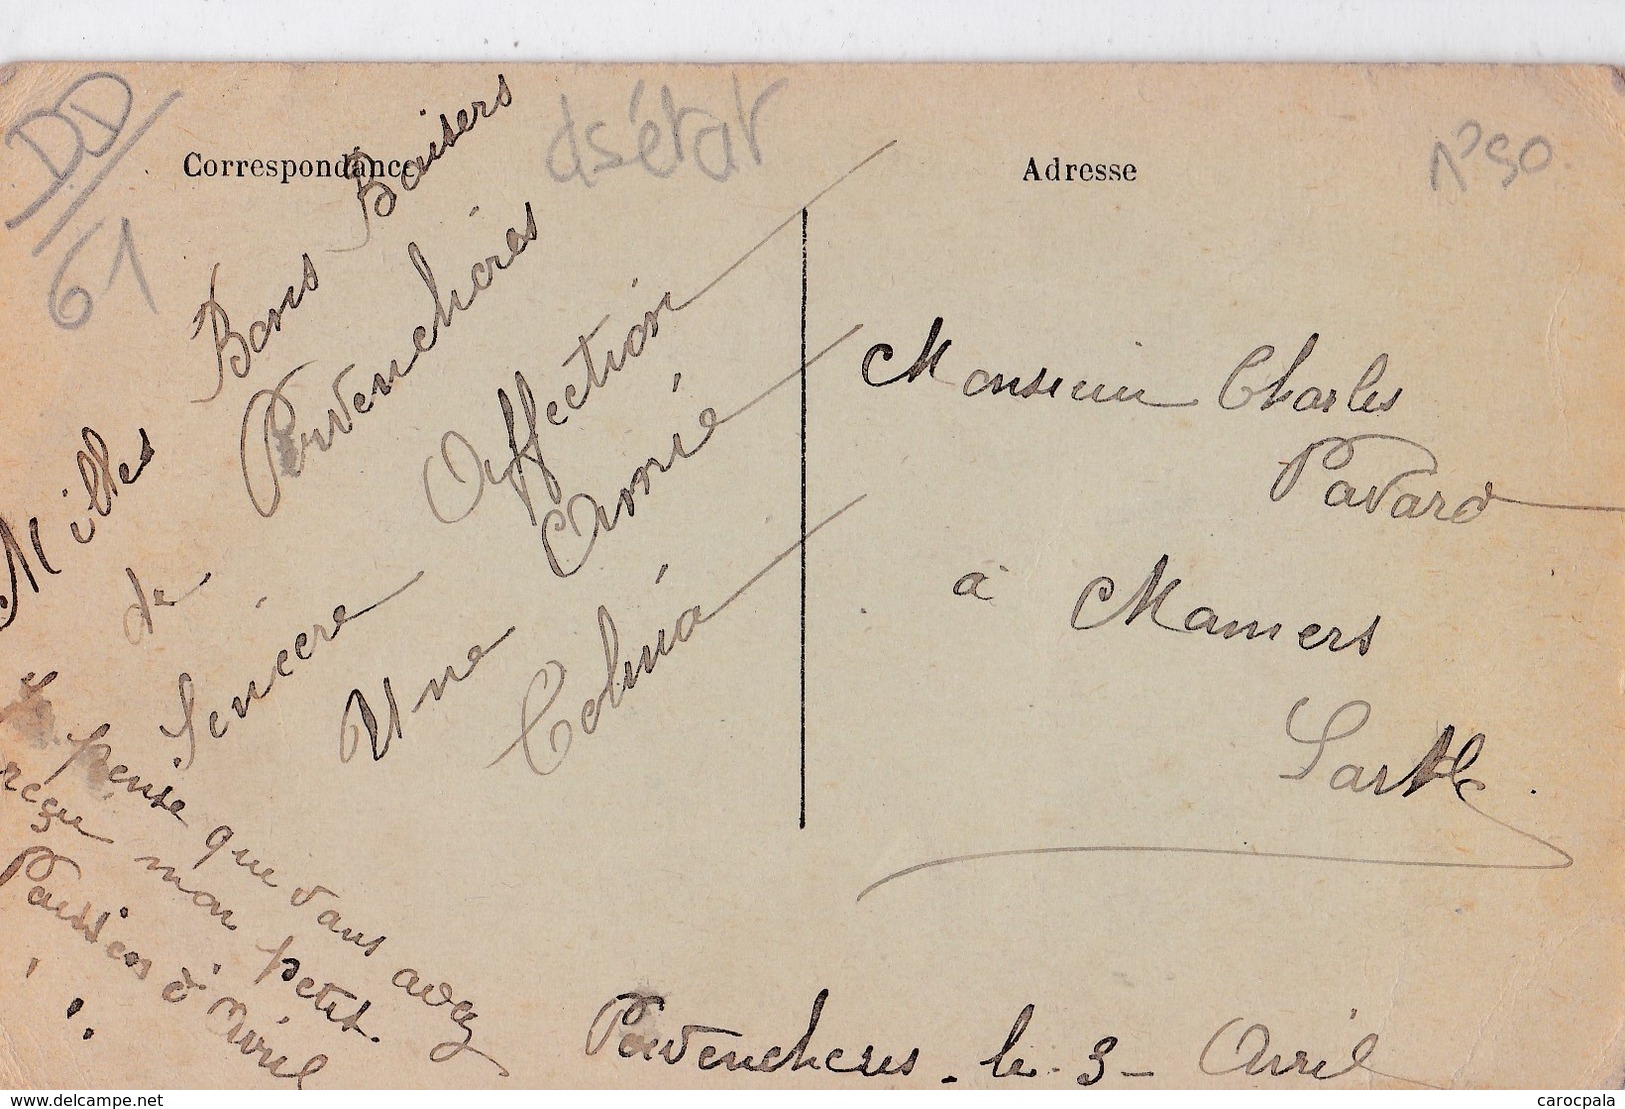 DD/61
Correspondance
asétat
Adresse
N°90.
Milles Bons Baisers
de Pervenchères
Sincère Affection
Une Amie
Colma
Je pense que vous avez
reçu mon petit
Poisson d'Avril
Monsieur Charles
Pavard
à Mamers
Sarthe.
Pervenchères. le. 3 - Avril
carocpala